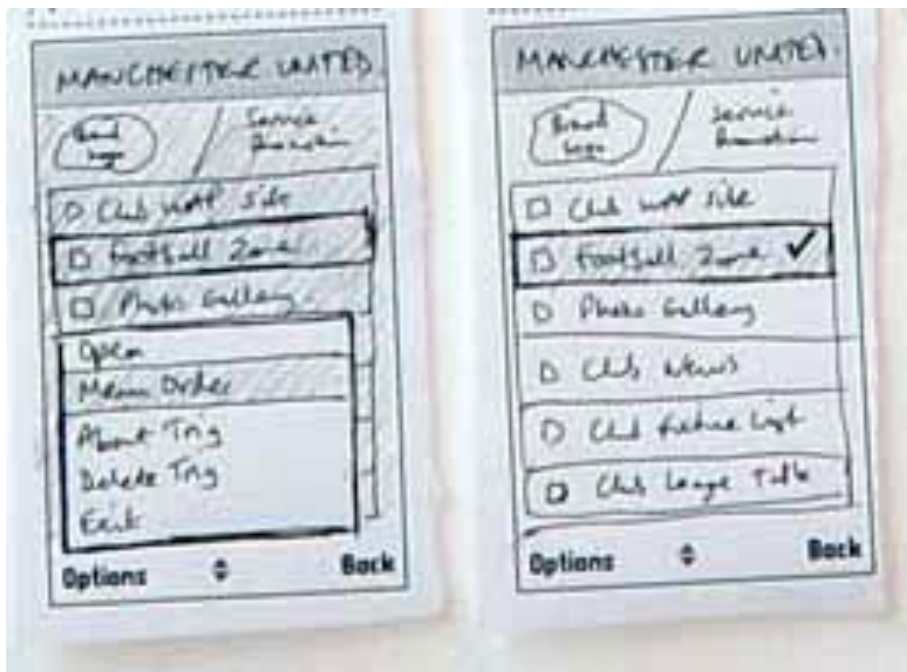 MANCHESTER UNITED
Brand
Logo
Service
Promotion
Club WAP Site
Football Zone
Photo Gallery
Open
Menu Order
About Trig
Delete Trig
Exit
Options
Back
MANCHESTER UNITED
Brand
Logo
Service
Promotion
Club WAP Site
Football Zone ✓
Photo Gallery
Club News
Club Fixture List
Club League Table
Options
Back